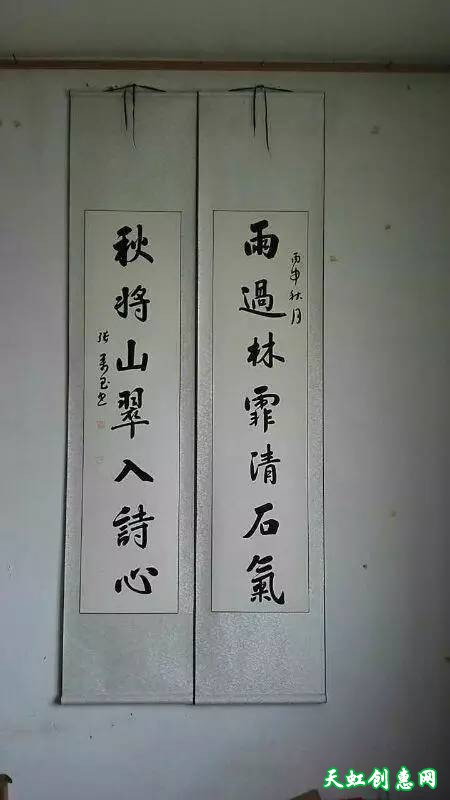 雨過林霏清石氣
丙申秋月
秋將山翠入詩心
張
天虹创惠网